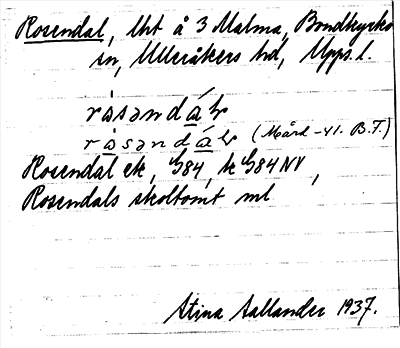 Rosendal, lht å 3 Malma, Bondkyrko
sn, Ulleråkers hd, Upps. l.
ròsəndáɫ
ròsəndáɫ (Mård -41. B.F.)
Rosendal ek, G84, k G84NV,
Rosendals skoltomt ml
Stina Aallander 1937.